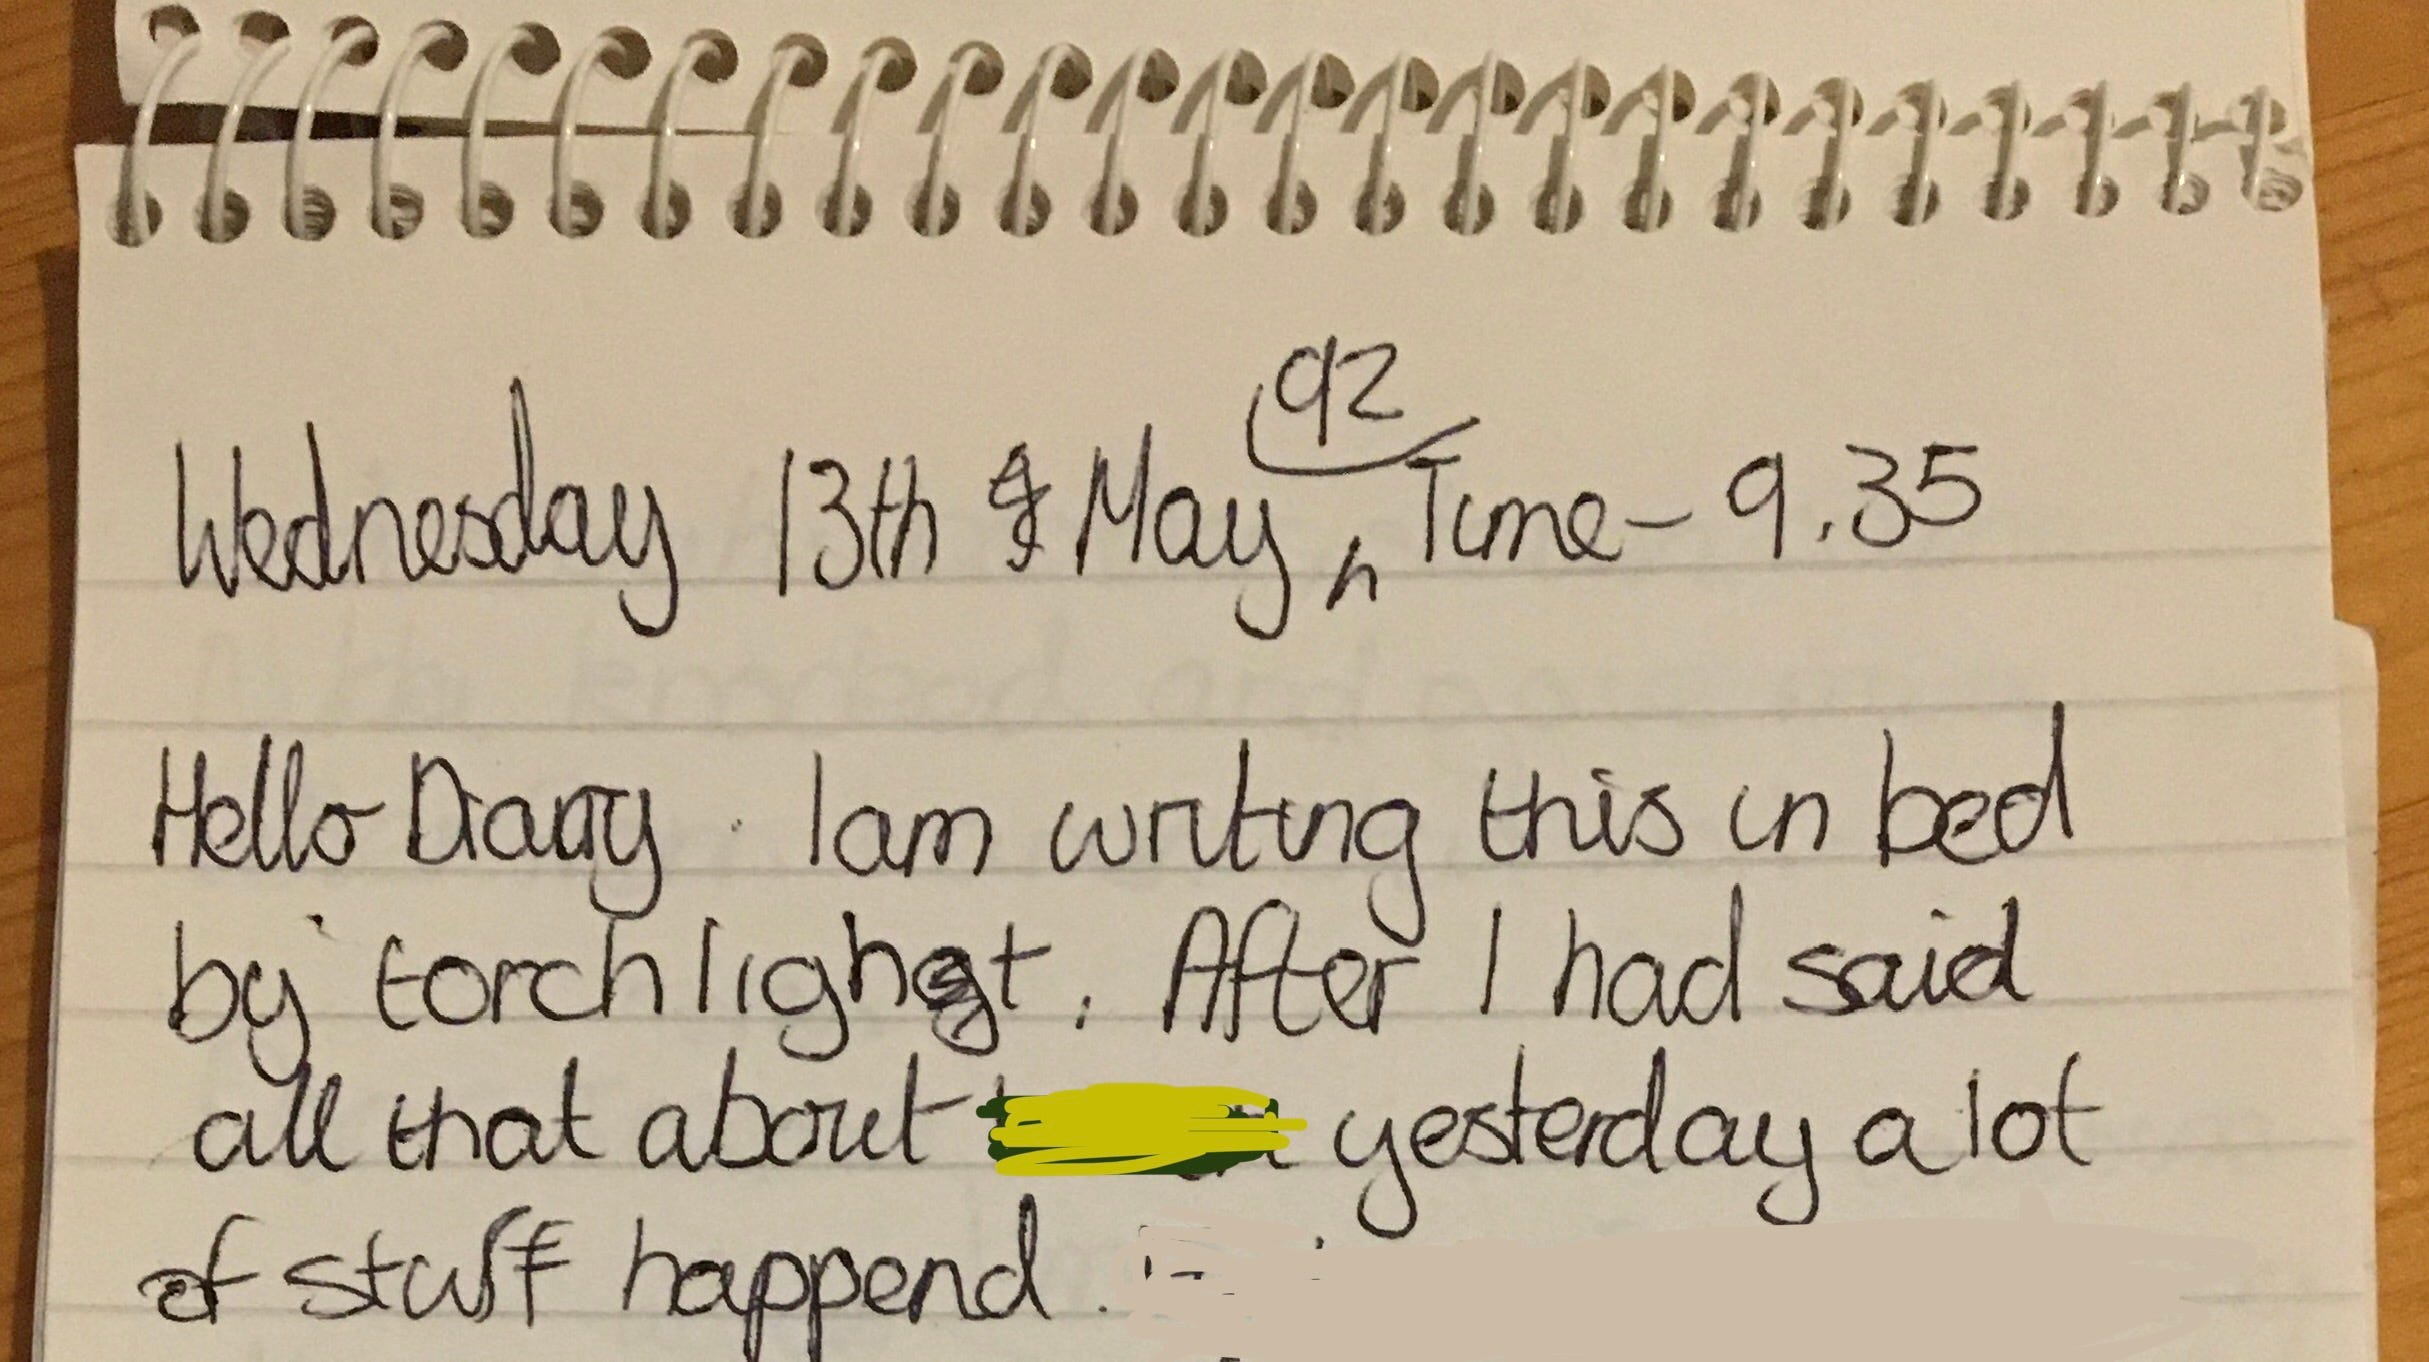 92
Wednesday 13th May, Time - 9.35
Hello Diary. I am writing this in bed
by torch light. After I had said
all that about yesterday a lot
of stuff happend.